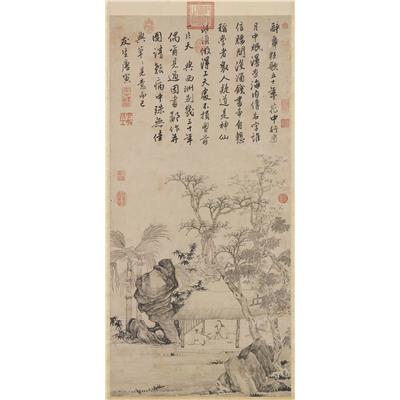 醉舞狂歌五十年花中行樂
月中眠漫勞海內傳名字誰
信腰間沒酒錢書本自慚
稱學者眾人疑道是神仙
些須做得工夫處不損胸前
一片天 與西洲別幾三十年
偶爾見過因書鄙作并
圖請教病中殊無佳
興草草見意而已
友生唐寅